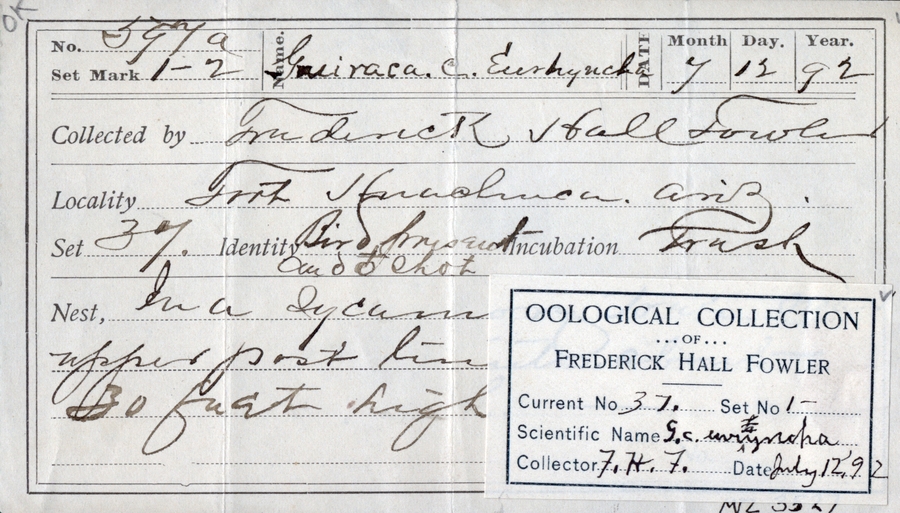 OK
No. 597a Name. Guiraca. c. Eurhyncha DATE Month Day. Year.
Set Mark 1-2 7 12 92
Collected by Frederick Hall Fowler
Locality Fort Huachuca. Ariz.
Set 37. Identity Bird present Incubation Fresh
and shot
Nest, In a Sycam
upper post lim
30 feet high
OOLOGICAL COLLECTION
...OF...
FREDERICK HALL FOWLER
Current No 37. Set No 1-
Scientific Name G.c.
Collector F. H. F. Date July, 12, 92